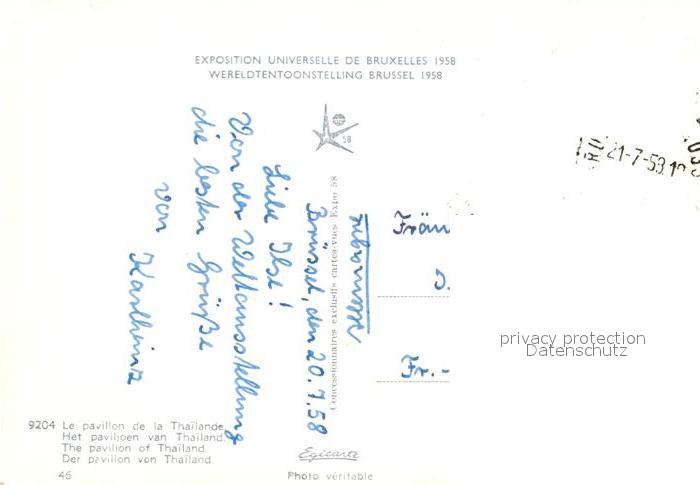 EXPOSITION UNIVERSELLE DE BRUXELLES 1958
WERELDTENTOONSTELLING BRUSSEL 1958
58
Brüssel, den 20.7.58
Liebe Ilse!
Von der Weltausstellung
die besten Grüße
von Karlheinz
Concessionnaires exclusifs cartes-vues Expo 58
21-7-58.1
Fräu
Fr.-
privacy protection
Datenschutz
9204 Le pavillon de la Thaïlande.
Het paviljoen van Thaïland.
The pavilion of Thaïland.
Der pavillon von Thaïland.
46
Egicarte
Photo véritable